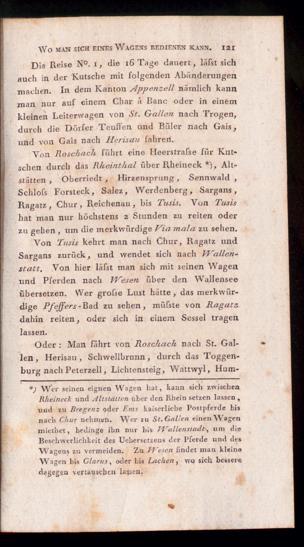 Wo man sich eines Wagens bedienen kann. 121
Die Reise No. 1, die 16 Tage dauert, läſst sich
auch in der Kutsche mit folgenden Abänderungen
machen. In dem Kanton Appenzell nämlich kann
man nur auf einem Char à Banc oder in einem
kleinen Leiterwagen von St. Gallen nach Trogen,
durch die Dörfer Teuffen und Büler nach Gais,
und von Gais nach Herisau fahren.
Von Roschach führt eine Heerstraſse für Kut-
schen durch das Rheinthal über Rheineck *), Alt-
stätten, Oberriedt, Hirzensprung, Sennwald,
Schloſs Forsteck, Salez, Werdenberg, Sargans,
Ragatz, Chur, Reichenau, bis Tusis. Von Tusis
hat man nur höchstens 2 Stunden zu reiten oder
zu gehen, um die merkwürdige Via mala zu sehen.
Von Tusis kehrt man nach Chur, Ragatz und
Sargans zurück, und wendet sich nach Wallen-
statt. Von hier läſst man sich mit seinen Wagen
und Pferden nach Wesen über den Wallensee
übersetzen. Wer groſse Lust hätte, das merkwür-
dige Pfeffers-Bad zu sehen, müſste von Ragatz
dahin reiten, oder sich in einem Sessel tragen
lassen.
Oder: Man fährt von Roschach nach St. Gal-
len, Herisau, Schwellbrunn, durch das Toggen-
burg nach Peterzell, Lichtensteig, Wattwyl, Hum-
*) Wer seinen eignen Wagen hat, kann sich zwischen
Rheineck und Altstätten über den Rhein setzen lassen,
und zu Bregenz oder Ems kaiserliche Postpferde bis
nach Chur nehmen. Wer zu St. Gallen einen Wagen
miethet, bedinge ihn nur bis Wallenstadt, um die
Beschwerlichkeit des Uebersetzens der Pferde und des
Wagens zu vermeiden. Zu Wesen findet man kleine
Wagen bis Glarus, oder bis Lachen, wo sich bessere
dagegen vertauschen lassen.